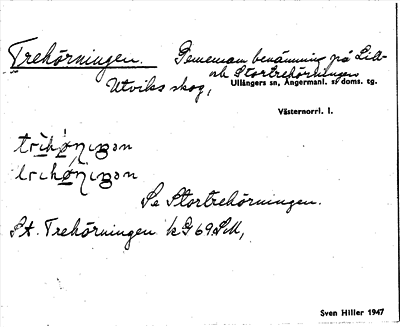 Trehörningen. Gemensam benämning på Lill-
och Stortrehörningen
Utviks skog,
Ullångers sn, Ångermanl. s. doms. tg.
Västernorrl. l.
Se Stortrehörningen.
St. Trehörningen k G 69 SM,
Sven Hiller 1947